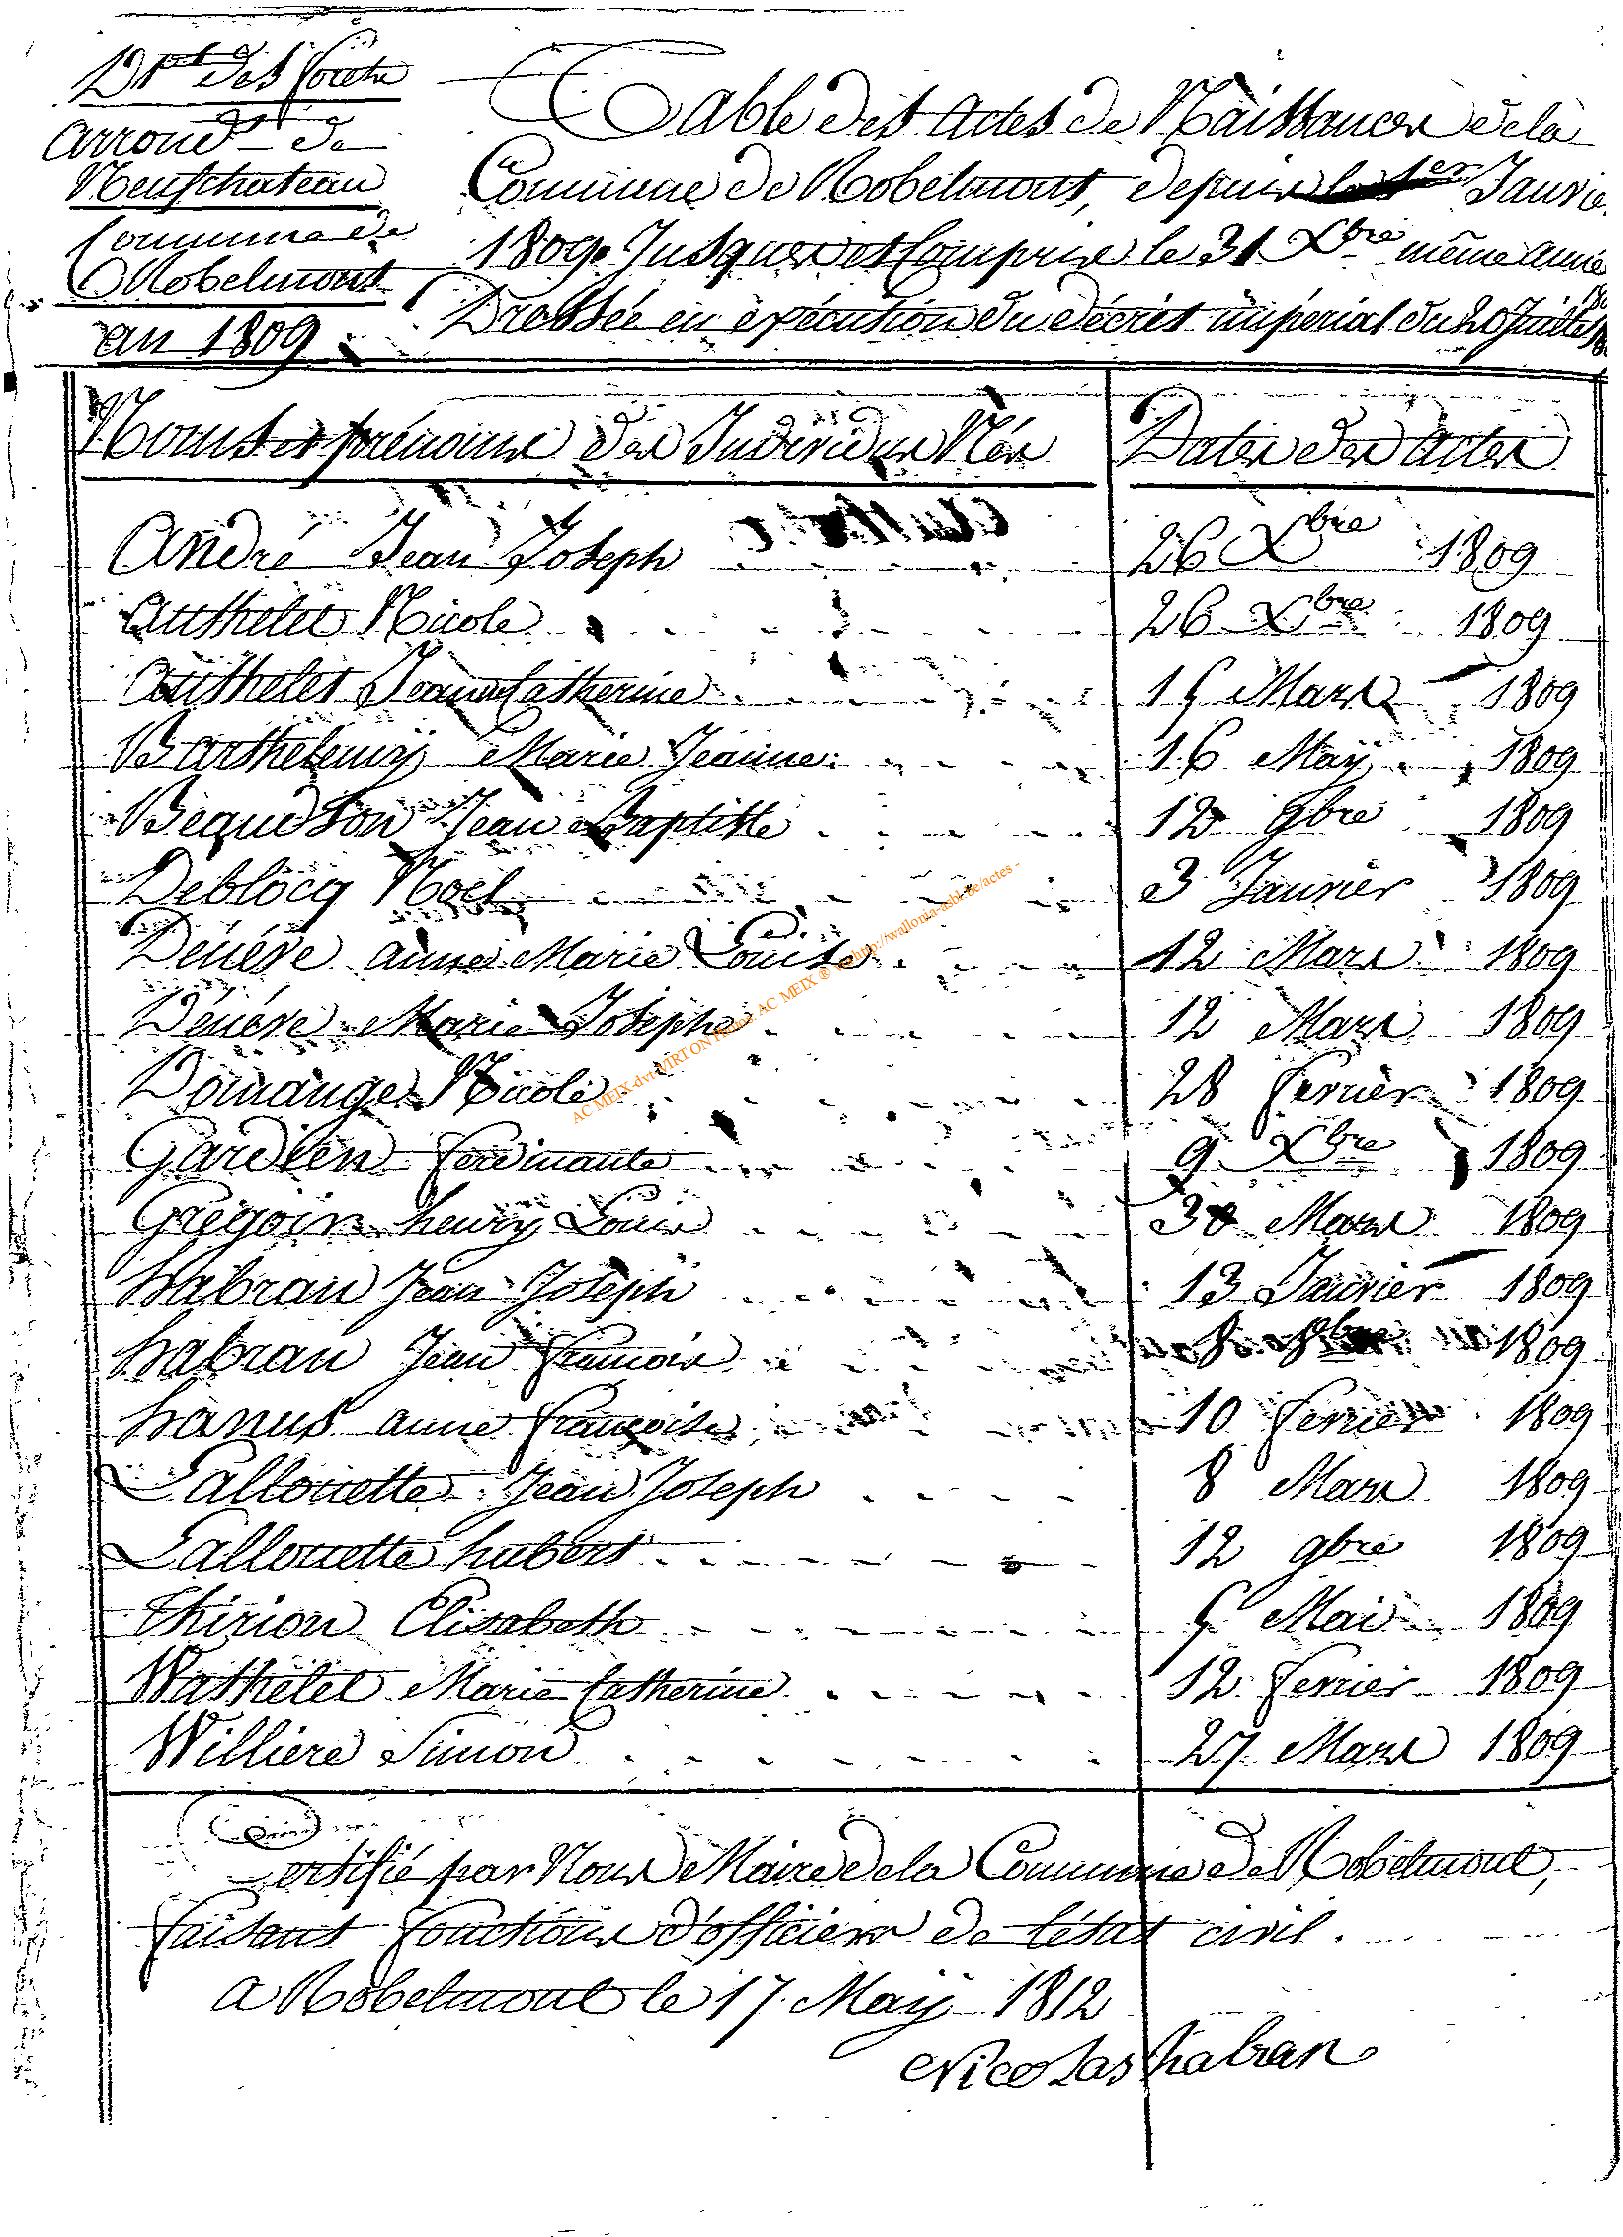 Dpt des forêts
arrondt de
Neufchateau
Commune de
Robelmont
an 1809
Table des Actes de Naissances de la
Commune de Robelmont, depuis le 1er Janvier
1809. Jusques et Compris le 31 Xbre même année
Dressée en exécution du décret impérial du 20 Juillet
Noms et prénoms des Individus Nés
Dates des actes
André Jean Joseph 26 Xbre 1809
Authelet Nicole 26 Xbre 1809
Authelet Jeanne Catherine 15 Mars 1809
Barthelemÿ Marie Jeanne 16 Maÿ 1809
Bequeson Jean Baptiste 12 9bre 1809
Deblocq Noel 3 Janvier 1809
Dénéve anne Marie Louise 12 Mars 1809
Dénéve Marie Joseph 12 Mars 1809
Domange Nicole 28 fevrier 1809
Gardien ferdinante 9 Xbre 1809
Grégoire henrÿ Louis 30 Mars 1809
habran Jean Joseph 13 Janvier 1809
habran Jean françois 8 8bre 1809
hanus anne françoise 10 fevrier 1809
Lallouette Jean Joseph 8 Mars 1809
Lallouette hubert 12 9bre 1809
Thirion Elisabeth 5 Mai 1809
Wathelet Marie Catherine 12 fevrier 1809
Williere Simon 27 Mars 1809
Certifié par Nous Maire de la Commune de Robelmont,
faisant fonctions d'officier de l'état civil.
a Robelmont le 17 Maÿ 1812
Nicolas habran